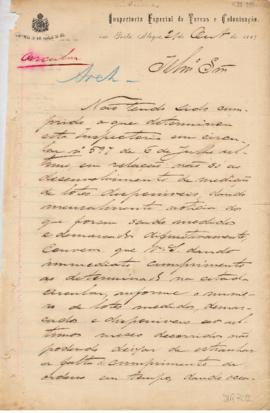 Inspectoria Especial de Terras e Colonisação.
em Porto Alegre, 21 de de 1889
Circular
Illmo Snr
Não tendo sido cum-
prido o que determinou
esta inspectoria em circu-
lar nº 597 de 6 de julho ul-
timo em relação não só ao
desenvolvimento de medição
de lotes disponiveis, dando
mensalmente noticia do
que foram sendo medidos
e demarcados definitivamente,
Convem que V. Sª dando
immediato cumprimento
ao determinado na citada
circular, informe o nume-
ro de lotes medidos, demar-
cados e disponiveis nos ul-
timos mezes decorridos não
podendo deixar de estranhar
a falta de cumprimento de
ordens em tempo, dando